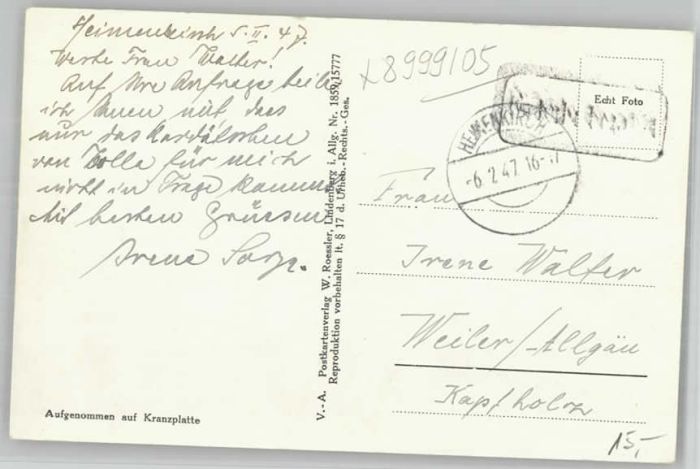 Heimenkirch 5.II.47.
Werte Frau Walter!
Auf Ihre Anfrage teile
ich Ihnen mit das
nur das
von für mich
nicht in Frage kommt
Mit besten Grüssen
Irene
Aufgenommen auf Kranzplatte
V.-A. Postkartenverlag W. Roessler, Lindenberg i. Allg. Nr. 1859/15777
Reproduktion vorbehalten lt. § 17 d. Urheb.-Rechts.-Ges.
x8999/05
Echt Foto
HEIMENKIRCH
-6.2.47.16-17
Frau
Irene Walter
Weiler/Allgäu
Kapfholz
15,-